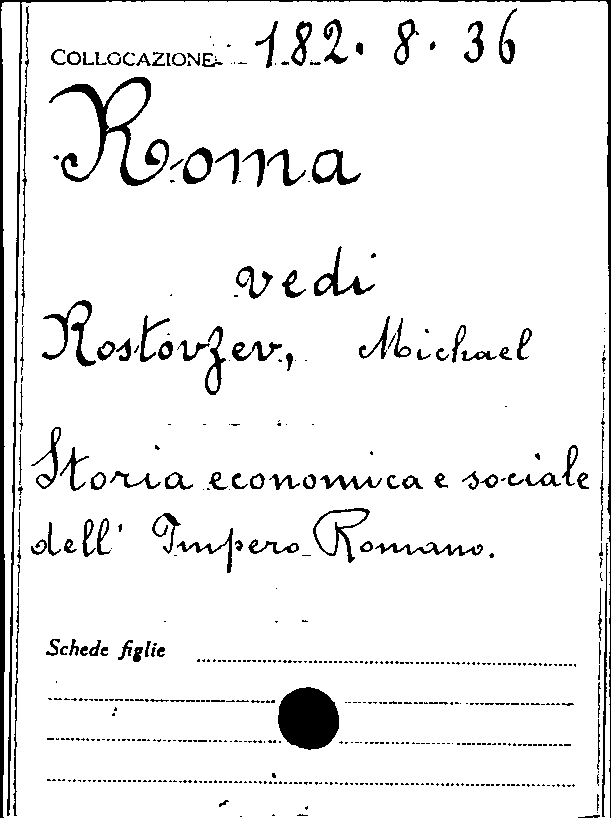 COLLOCAZIONE 182. 8. 36
Roma
vedi
Rostovzev, Michael
Storia economica e sociale
dell' Impero Romano.
Schede figlie